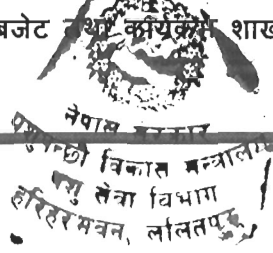 बजेट तथा कार्यक्रम शाख
नेपाल सरकार
पशुपन्छी विकास मन्त्रालय
पशु सेवा विभाग
हरिहरभवन, ललितपुर